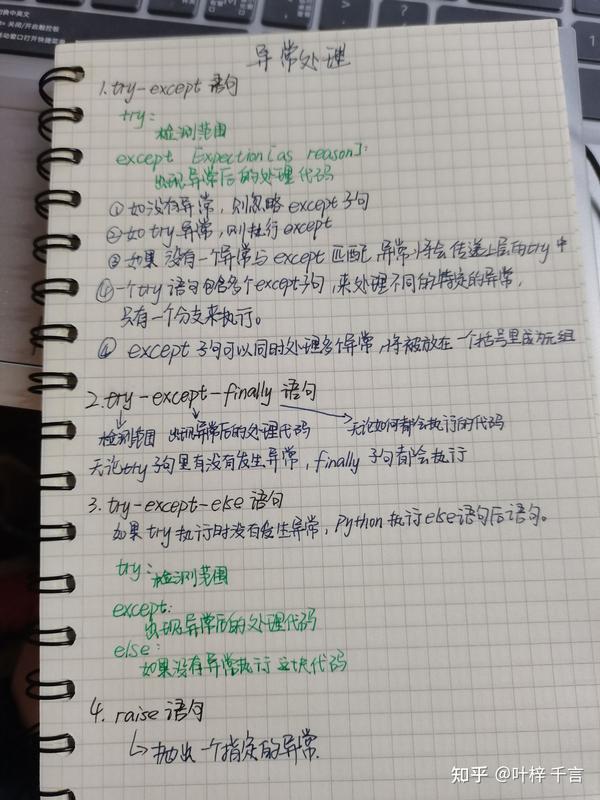 切换中英文
关闭/开启触控板
移动窗口打开快捷菜单
异常处理
1. try-except 语句
try:
检测范围
except Expection[as reason]:
出现异常后的处理代码
①如没有异常，则忽略 except 子句
②如 try 异常，则执行 except
③如果 没有一个异常与 except 匹配，异常将会传递上层的 try 中
④一个 try 语句包含多个 except 子句，来处理不同的特定的异常，
只有一个分支来执行。
④ except 子句可以同时处理多个异常，将被放在一个括号里成为元组
2. try-except-finally 语句
检测范围 出现异常后的处理代码 无论如何都会执行的代码
无论 try 子句里有没有发生异常，finally 子句都会执行
3. try-except-else 语句
如果 try 执行时没有发生异常，Python 执行 else 语句后语句。
try:
检测范围
except:
出现异常后的处理代码
else:
如果没有异常执行这块代码
4. raise 语句
抛出一个指定的异常.
知乎 @叶梓 千言